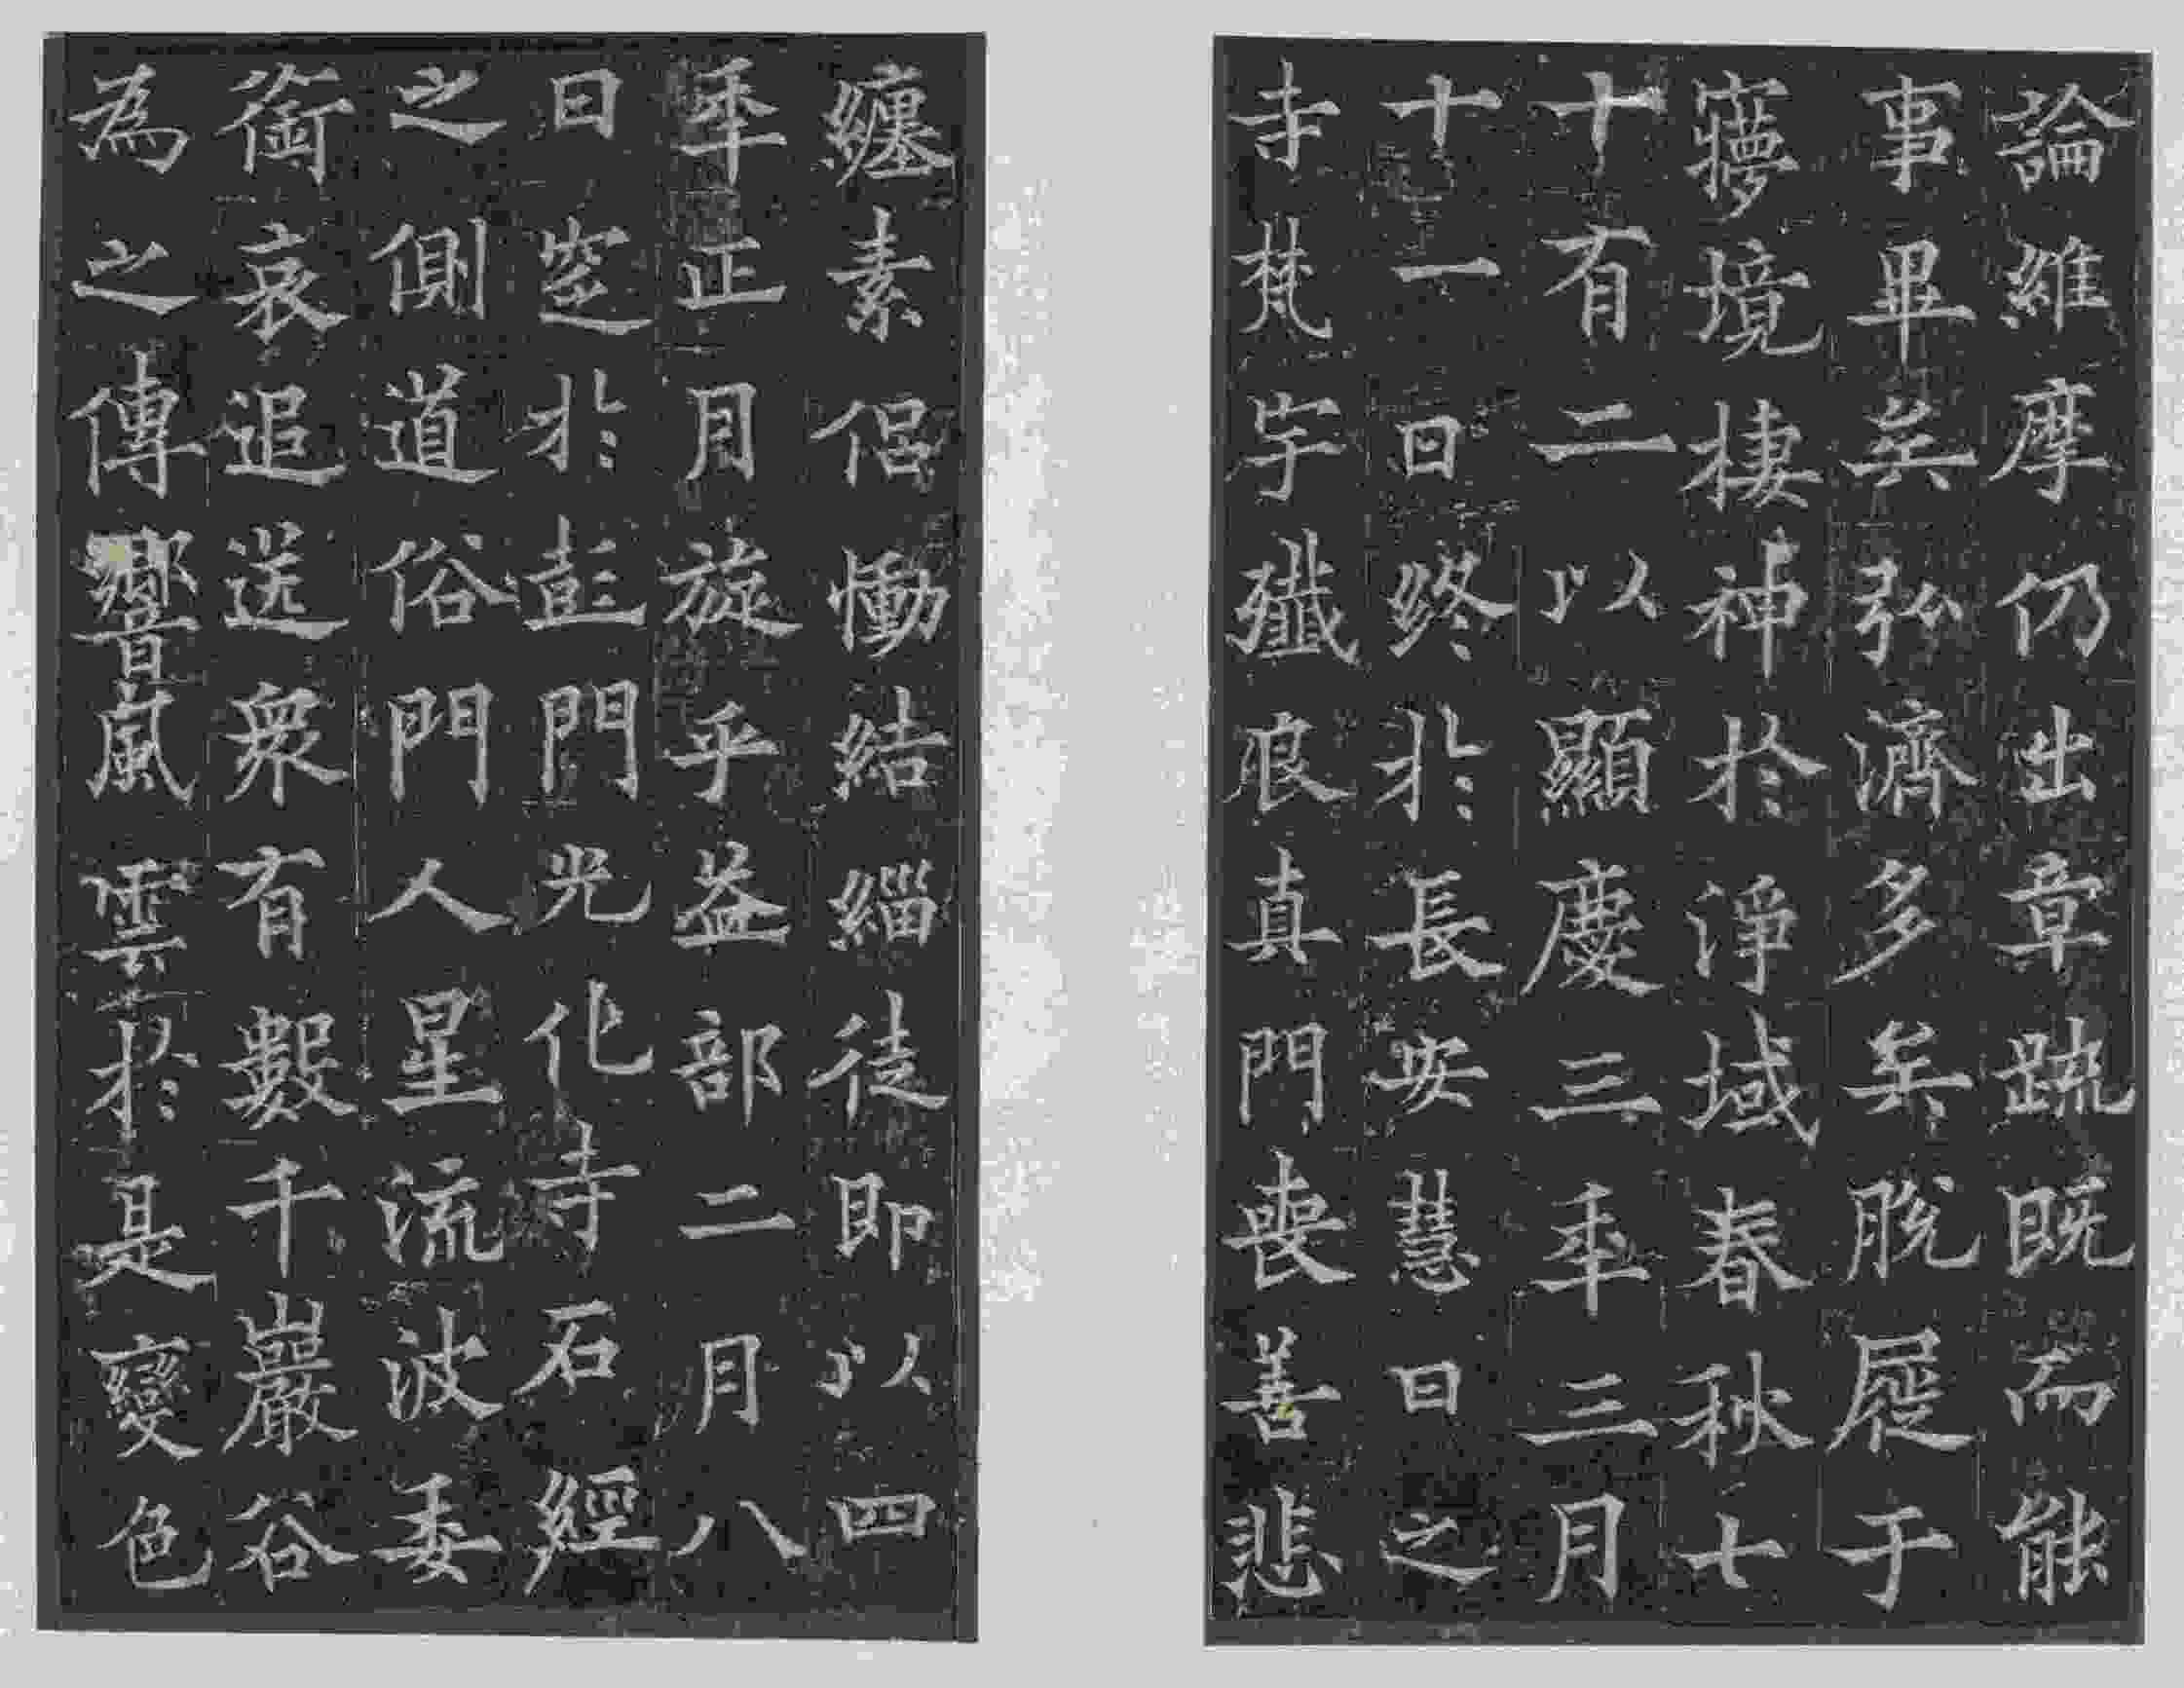 論維摩仍出章疏既而能
事畢矣弘濟多矣脫屣于
㝱境棲神於淨域春秋七
十有二以顯慶三年三月
十一日終於長安慧日之
寺梵宇殲良真門喪善悲
纏素侶慟結緇徒即以四
年正月旋乎益部二月八
日窆於彭門光化寺石經
之側道俗門人星流波委
銜哀追送衆有數千巖谷
為之傳響風雲於是變色